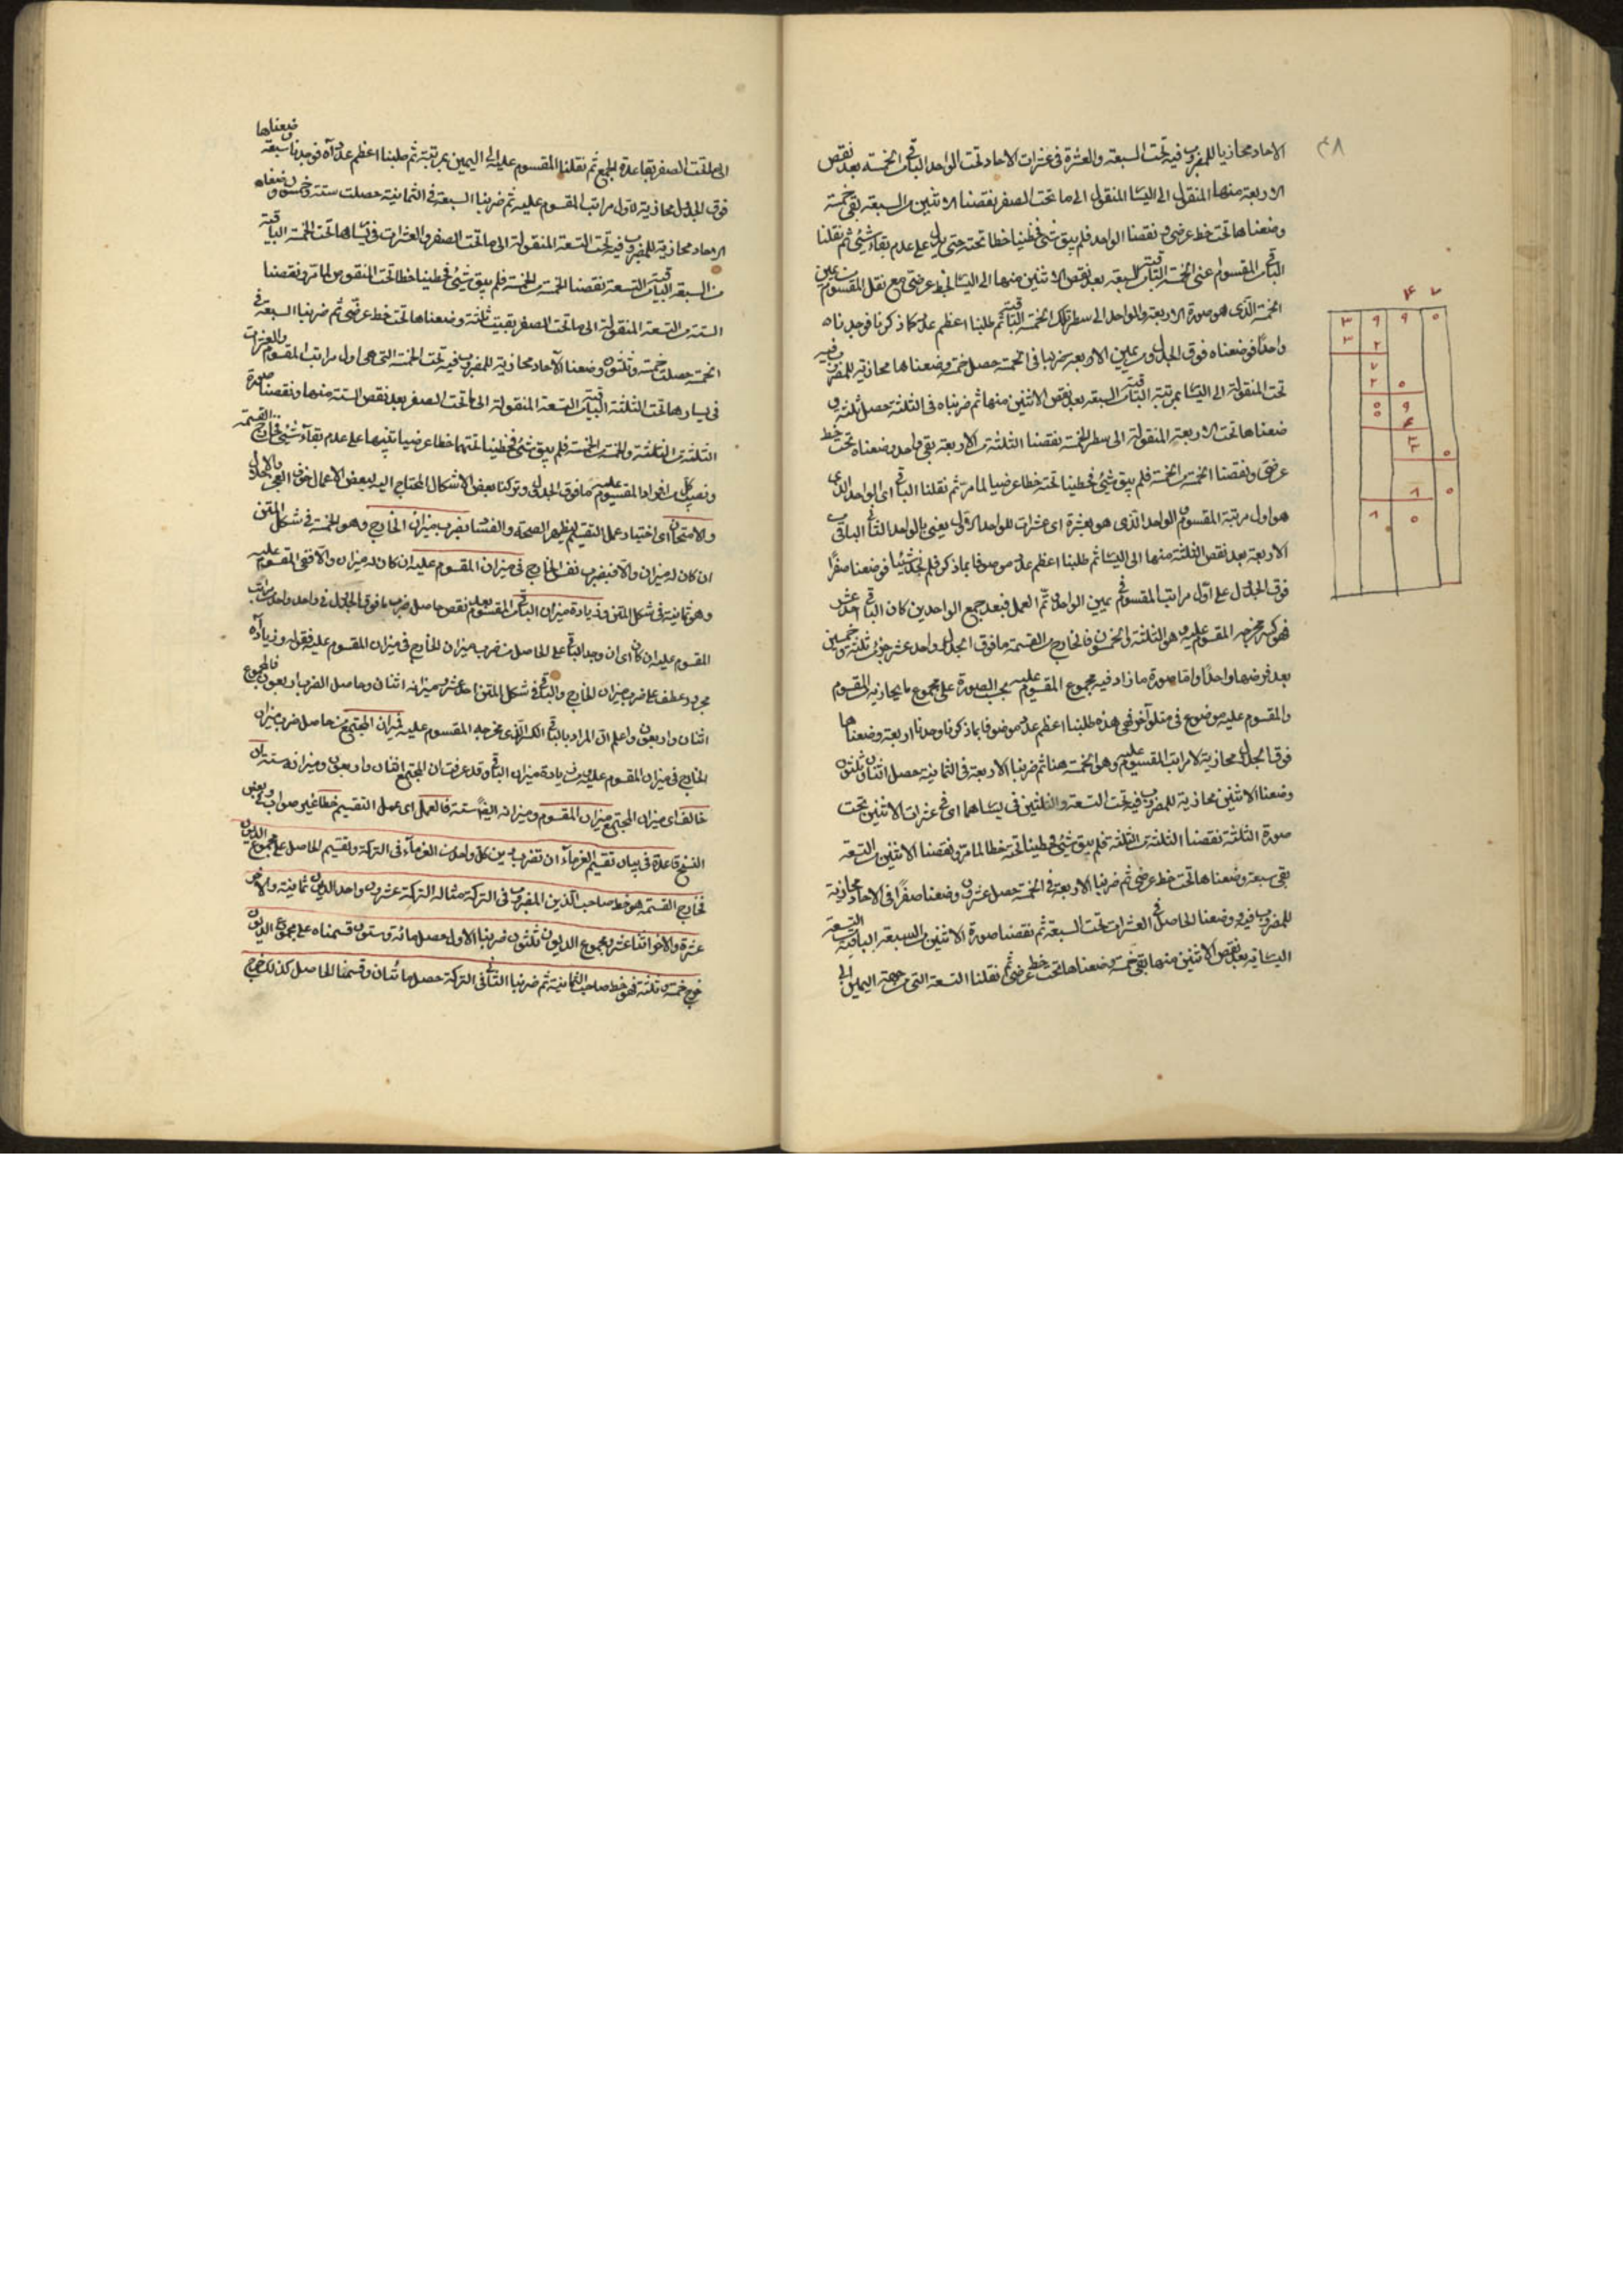 ٣٨
الاحاد محاذيا للمضروب فيه تحت السبعة والعشرة فى عشرات الاحاد تحت الواحد الباقى من الخمسة بعد نقص
الاربعة منها المنقول الى اليسار المنقول الى ما تحت الصفر نقصنا الاثنين من السبعة بقى خمسة
وضعناها تحت خط عرضى ونقصنا الواحد فلم يبق شئ فخططنا خطا تحته حتى يدل على عدم بقاء شئ ثم نقلنا
الباقى من المقسوم اعنى الخمسة الباقية من السبعة بعد نقص الاثنين منها الى اليسار بخط عرضى مع نقل المقسوم من يمين
الخمسة الذى هو صورة الاربعة والواحد الى سطر تلك الخمسة الباقية ثم طلبنا اعظم عدد كما ذكرنا فوجدناه
واحدا فوضعناه فوق الجدول من يمين الاربعة ضربنا فى الخمسة حصل خمسة وضعناها محاذية للمضروب فيه
تحت المنقولة الى اليسار بمرتبة الباقية من السبعة بعد نقص الاثنين منها ثم ضربناه فى الثلثة حصل ثلثة و
ضعناها تحت الاربعة المنقولة الى سطر الخمسة نقصنا الثلثة من الاربعة بقى واحد وضعناه تحت خط
عرضى ونقصنا الخمسة من الخمسة فلم يبق شئ فخططنا تحته خطا عرضيا لما مر ثم نقلنا الباقى اى الواحد الذى
هو اول مرتبة المقسوم الواحد الذى هو بعشرة اى عشرات للواحد الاول يعنى بالواحد الثانى الباقى من
الاربعة بعد نقص الثلثة منها الى اليسار ثم طلبنا اعظم عدد موصوفا بما ذكر فلم نجد شيئا فوضعنا صفرا
فوق الجدول على اول مراتب المقسوم فى يمين الواحد ثم العمل فبعد جمع الواحدين كان الباقى احد عشر
فهو كسر مخرجه المقسوم عليه وهو الثلثة والخمسون فالخارج من القسمة ما فوق الجدول واحد عشر جزء من ثلثة وخمسين
بعد فرضها واحدا واما صورة ما زاد فيه مجموع المقسوم عليه بحسب الصورة على مجموع ما يحاذيه من المقسوم
والمقسوم عليه موضوع فى متلو آخر فهى هذه طلبنا اعظم عدد موصوفا بما ذكرنا وجدنا اربعة وضعناها
فوق الجدول محاذية لامراتب المقسوم عليه وهو الخمسة هنا ثم ضربنا الاربعة فى الثمانية حصل اثنان وثلثون
وضعنا الاثنين محاذية للمضروب فيه تحت التسعة والثلثين فى يسارها اى فى عشرات الاثنين تحت
صورة الثلثة نقصنا الثلثة من الثلثة فلم يبق شئ فخططنا تحته خطا لما مر ونقصنا الاثنين من التسعة
بقى سبعة وضعناها تحت خط عرضى ثم ضربنا الاربعة فى الخمسة حصل عشرون وضعنا صفرا فى الاحاد محاذية
للمضروب فيه ووضعنا الحاصل فى العشرات تحت السبعة ثم نقصنا صورة الاثنين من السبعة الباقية من التسعة
اليسارية بعد نقص الاثنين منها بقى خمسة وضعناها تحت خط عرضى ثم نقلنا التسعة التى من جهة اليمين الى
٤ ٧
٣ ٩ ٩ ٥
٣ ٢
٧
٢ ٥
٥ ٩
٥ ٤
٣
٣ ٥
١ ٥
١ ٥
الى ما تحت الصفر بقاعدة الجمع ثم نقلنا المقسوم عليه الى اليمين بمرتبة ثم طلبنا اعظم عدد آه فوجدنا سبعة وضعناها
فوق الجدول محاذية لاول مراتب المقسوم عليه ثم ضربنا السبعة فى الثمانية حصلت ستة وخمسون وضعنا
الاحاد محاذية للمضروب فيه تحت التسعة المنقولة الى ما تحت الصفر والعشرات فى يسارها تحت الخمسة الباقية
من السبعة الباقية من التسعة نقصنا الخمسة من الخمسة فلم يبق شئ فخططنا خطا تحت المنقوص لما مر ونقصنا
الستة من التسعة المنقولة الى ما تحت الصفر بقيت ثلثة وضعناها تحت خط عرضى ثم ضربنا السبعة فى
الخمسة حصلت خمسة وثلثون وضعنا الآحاد محاذية للمضروب فيه تحت الخمسة التى هى اول مراتب المقسوم والعشرات
فى يسارها تحت الثلثة الباقية من التسعة المنقولة الى ما تحت الصفر بعد نقص الستة منها ونقصنا صورة
الثلثة من الثلثة والخمسة من الخمسة فلم يبق شئ فخططنا تحتها خطا عرضيا تنبيها على عدم بقاء شئ فخارج القسمة
ونصيب كل من افراد المقسوم عليه ما فوق الجدول وتركنا بعض الاشكال المحتاج اليه لبعض الاعمال خوف
والامتحان اى اختبار عمل التقسيم ليظهر الصحة والفساد بضرب ميزان الخارج وهو الخمسة فى شكل المتن
ان كان له ميزان والا فبضرب نفس الخارج فى ميزان المقسوم عليه ان كان له ميزان والا ففى المقسوم عليه
وهو ثمانية فى شكل المتن وزيادة ميزان الباقى من المقسوم بعد نقص حاصل ضرب ما فوق الجدول فى واحد واحد من مراتب
المقسوم عليه ان كان اى ان وجد الباقى على الحاصل من ضرب ميزان الخارج فى ميزان المقسوم عليه فقوله وزيادة
مجرور عطف على ضرب ميزان الخارج والباقى فى شكل المتن احد عشر ميزانه اثنان وحاصل الضرب اربعون فالمجموع
اثنان واربعون واعلم ان المراد بالباقى الكسر الذى مخرجه المقسوم عليه فميزان المجتمع من حاصل ضرب ميزان
الخارج فى ميزان المقسوم عليه ومن زيادة ميزان الباقى وقد عرفت ان المجتمع اثنان واربعون وميزانه ستة ان
خالف اى ميزان المجتمع ميزان المقسوم وميزانه ايضا ستة فالعمل اى عمل التقسيم خطا غير صواب وفى بعض
النسخ قاعدة فى بيان تقسيم الغرماء ان تضرب دين كل واحد من الغرماء فى التركة وتقسم الحاصل على مجموع الديون
فخارج القسمة هو حظ صاحب الدين المضروب فى التركة مثاله التركة عشرون واحد الديون ثمانية والآخر
عشرة والآخر اثنا عشر ومجموع الديون ثلثون ضربنا الاول حصل مائة وستون قسمناه على مجموع الديون
خرج خمسة وثلثة فهو حظ صاحب الثمانية ثم ضربنا الثانى فى التركة حصل مائتان وقسمنا الحاصل كذلك خرج